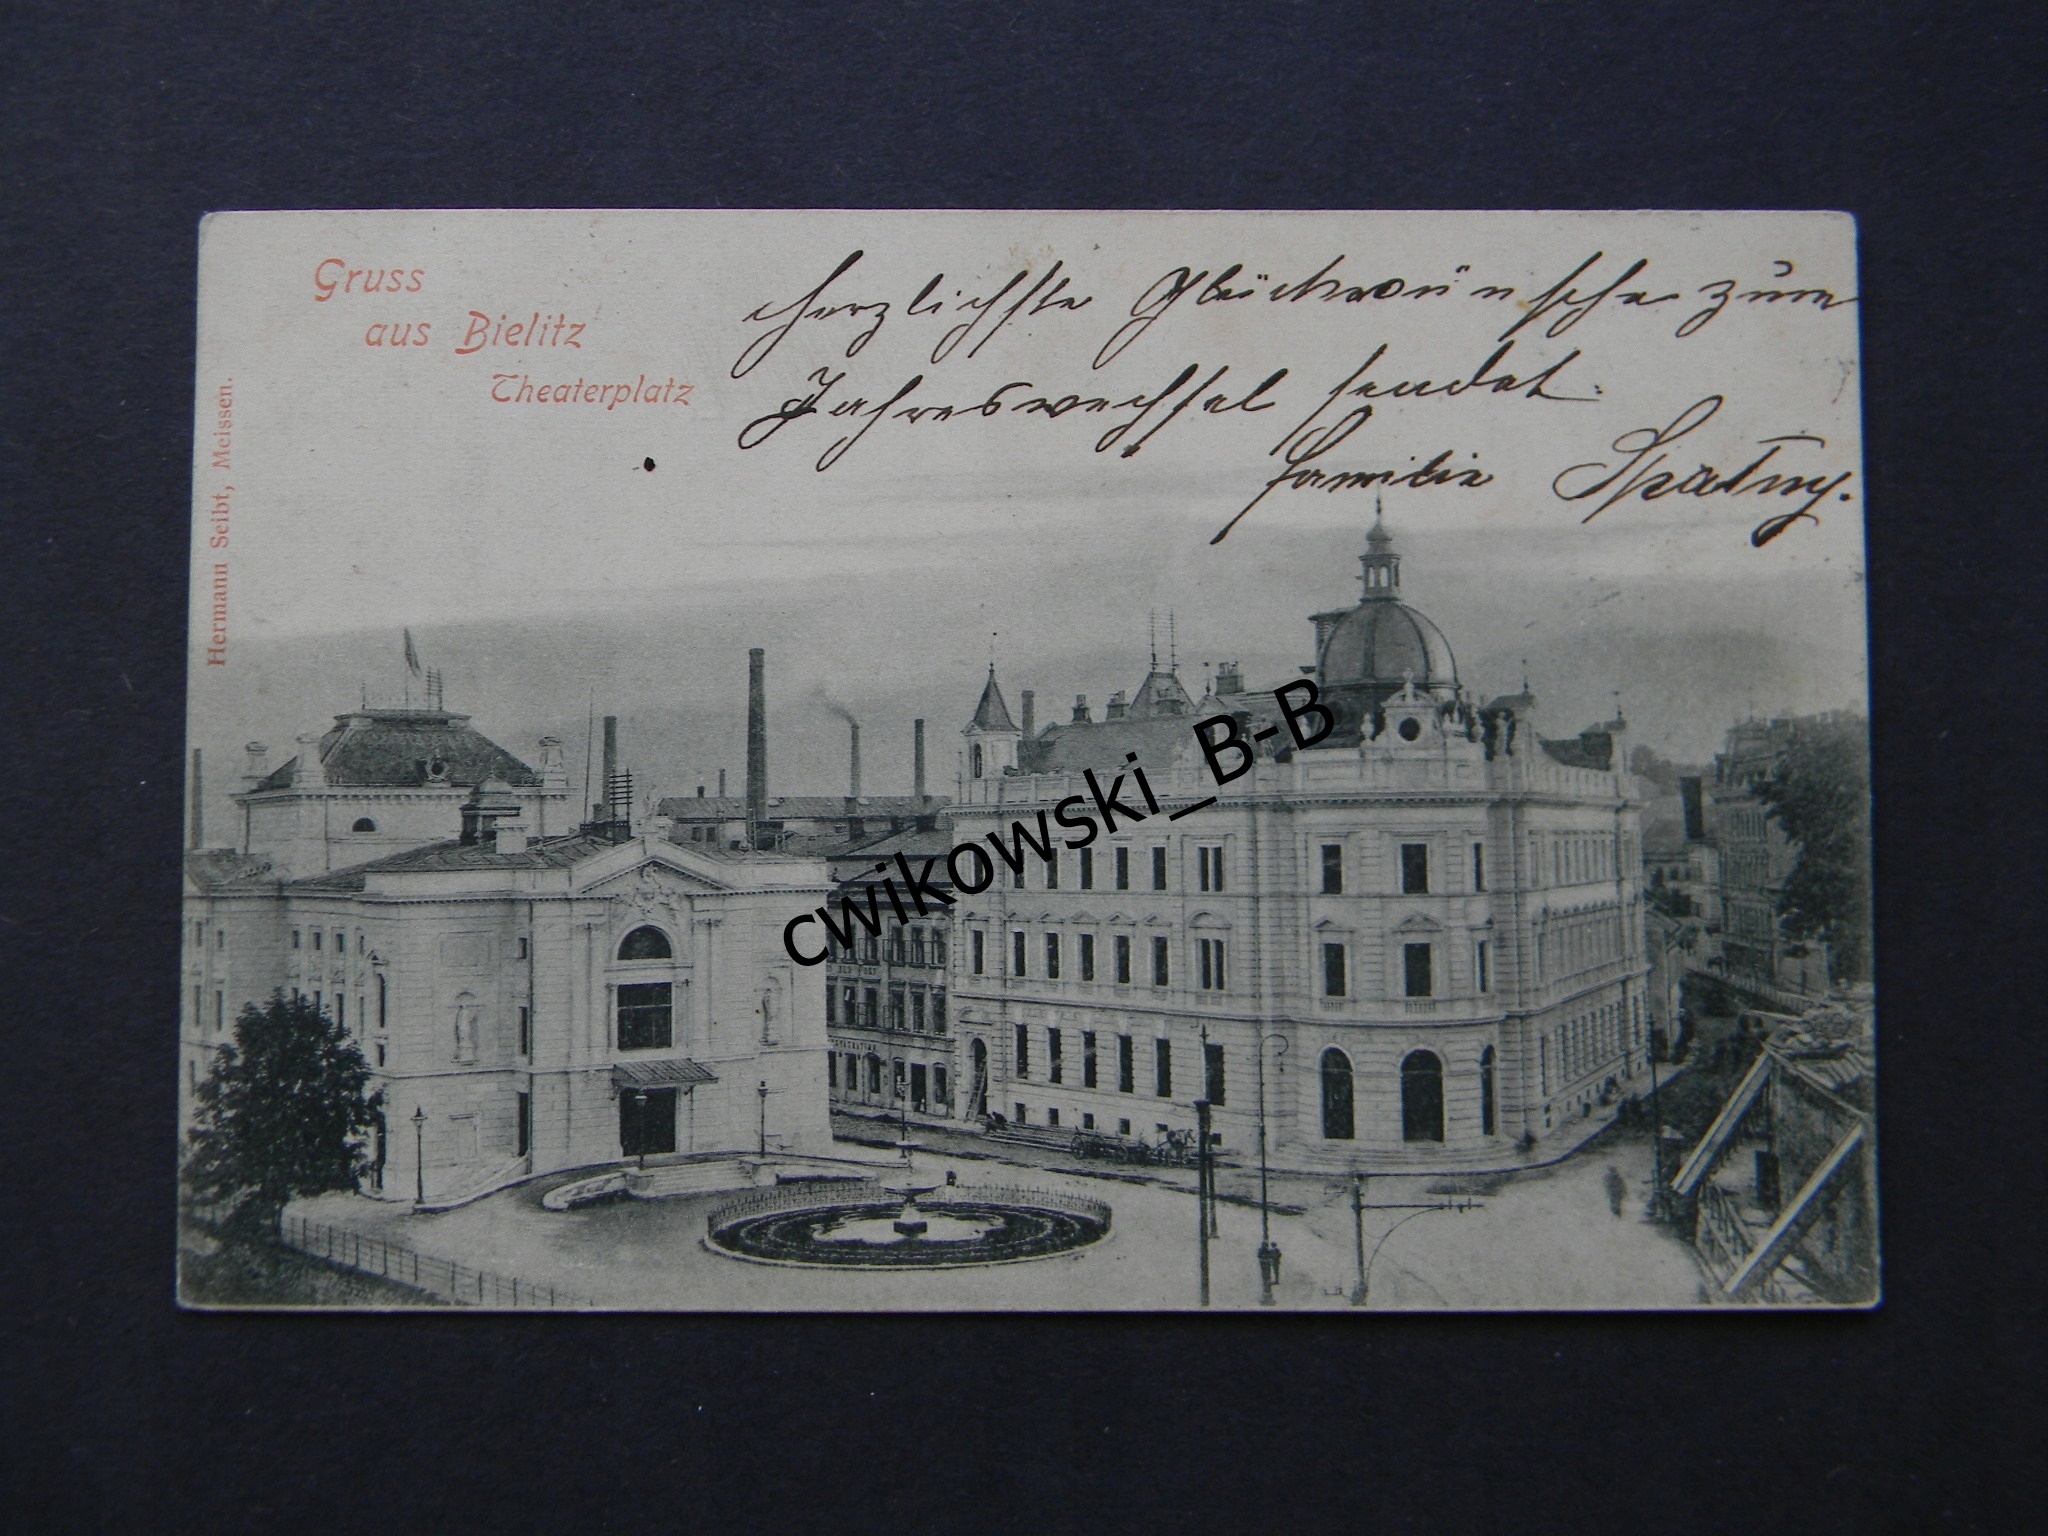 Gruss
aus Bielitz
Theaterplatz
Hermann Seibt, Meissen.
Herzlichste Glückwünsche zum
Jahreswechsel sendet
Familie Spatny.
cwikowski_B-B